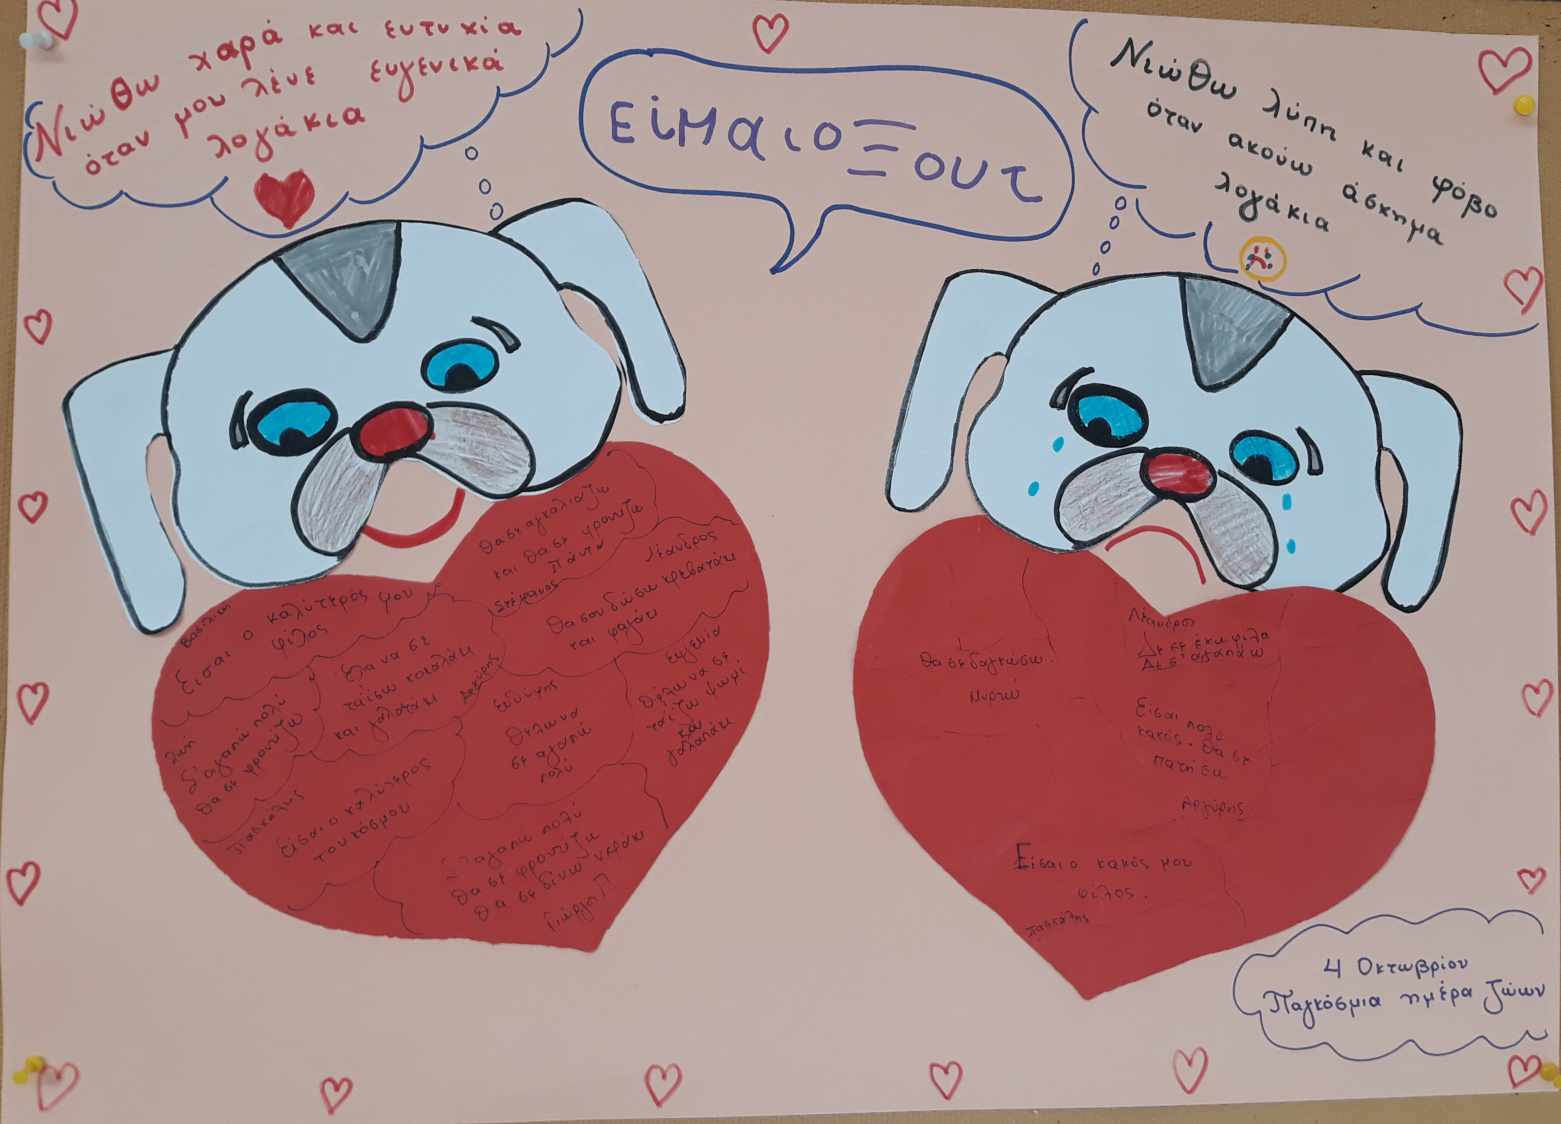 Νιώθω χαρά και ευτυχία
όταν μου λένε ευγενικά
λογάκια
είμαι ο Ξουτ
Νιώθω λύπη και φόβο
όταν ακούω άσκημα
λογάκια
Θα σε αγκαλιάζω
και θα σε φροντίζω
πάντα
Στέφανος
Λέανδρος
Θα σου δώσω κρεβατάκι
και φαγάκι
Βασιλική
Είσαι ο καλύτερός μου
φίλος
Έλα να σε
ταΐσω κοκαλάκι
και γαλατάκι
Αργύρης
Ευγενία
Θέλω να σε
ταΐζω ψωμί
και
γαλατάκι
Ευθύμης
Θέλω να
σε αγαπώ
πολύ
Ζωή
Σ'αγαπώ πολύ
Θα σε φροντίζω
Πασχάλης
Είσαι ο καλύτερος
του κόσμου
Σ'αγαπώ πολύ
Θα σε φροντίζω
Θα σε δίνω νεράκι
Γιώργος Π
Θα σε δαγκώσω.
Μυρτώ
Λέανδρος
Δε σε έχω φίλο
Δε σ'αγαπάω
Είσαι πολύ
κακός. Θα σε
πατήσω
Αργύρης
Είσαι ο κακός μου
φίλος.
Πασχάλης
4 Οκτωβρίου
Παγκόσμια ημέρα ζώων